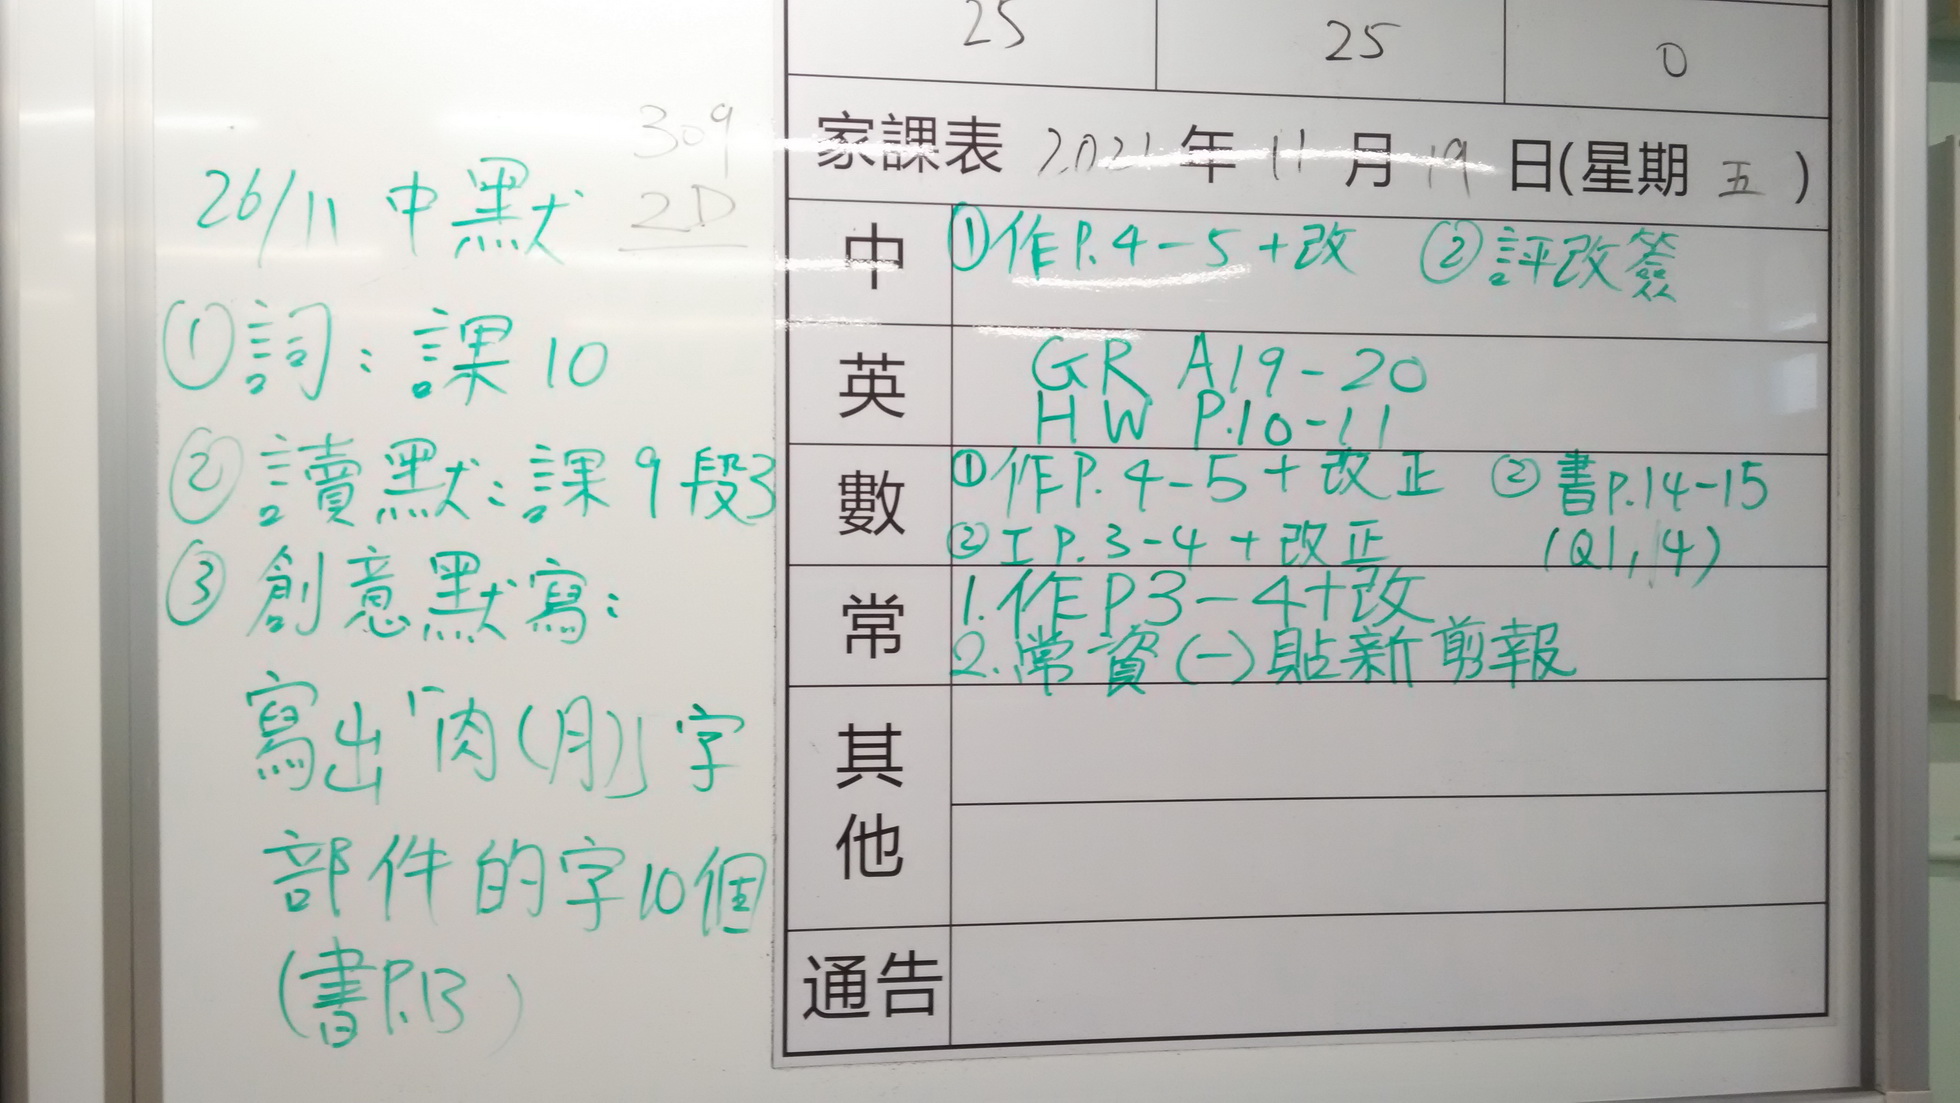 309
2D
26/11 中默
①詞：課10
②讀默：課9段3
③創意默寫：
寫出「肉(月)」字
部件的字10個
(書P.13)
25 25 0
家課表 2021年11月19日(星期五)
中 ①作P.4-5+改 ②評改簽
英 GR A19-20
HW P.10-11
數 ①作P.4-5+改正 ②書P.14-15
③工P.3-4+改正 (Q1,4)
常 1.作P3-4+改
2.常資(一)貼新剪報
其他
通告